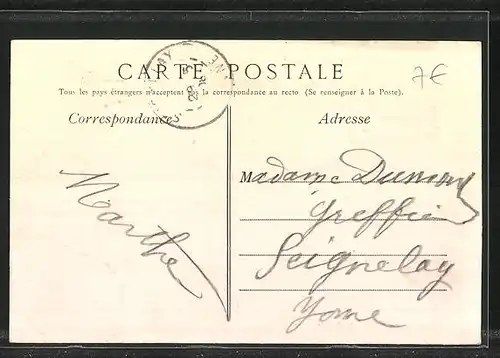 CARTE POSTALE
7€
Tous les pays étrangers n'acceptent pas la correspondance au recto (Se renseigner à la Poste).
Correspondance
Adresse
Marthe
Madame Dumont
Greffier
Seignelay
Yonne